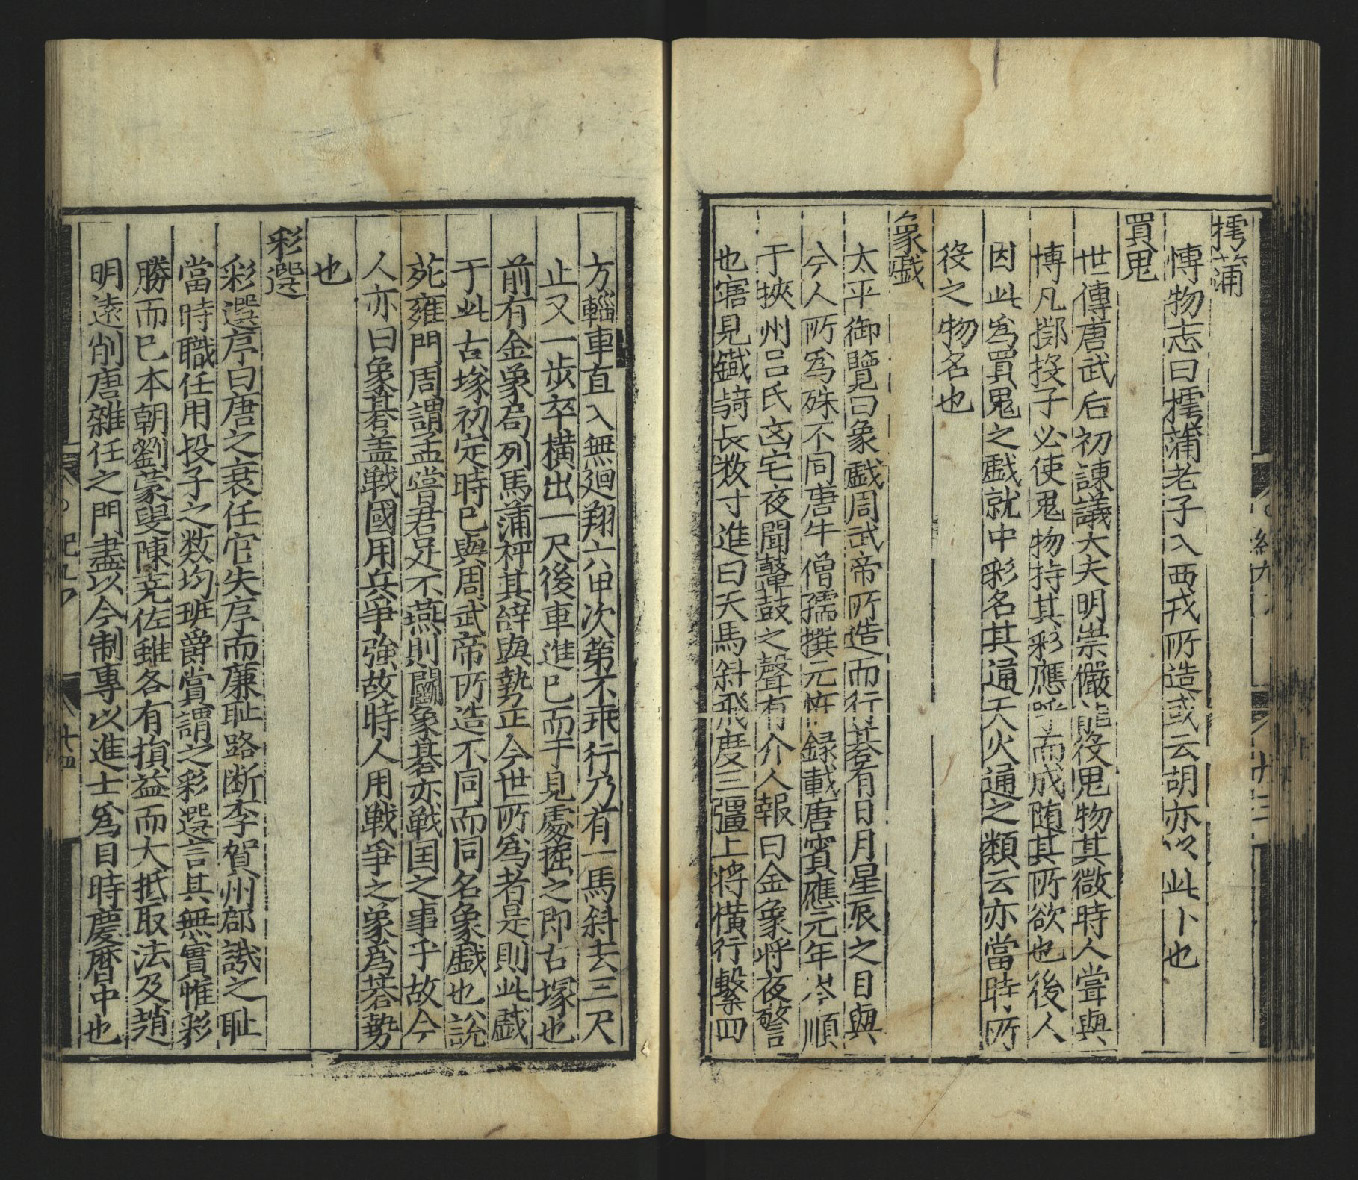 摴蒲
博物志曰摴蒲老子入西戎所造或云胡亦以此卜也
買鬼
世傳唐武后初諫議大夫明崇儼能役鬼物其微時人嘗與
博凡擲投子必使鬼物持其彩應呼而成随其所欲也後人
因此為買鬼之戱就中彩名其通天火通之類云亦當時所
役之物名也
象戱
太平御覽曰象戱周武帝所造而行棊有日月星辰之目與
今人所為殊不同唐牛僧孺撰元怪録載唐寳應元年岑順
于挾州吕氏凶宅夜聞鼙鼓之聲有介人報曰金象将夜警
也寤見鐵騎长数寸進曰天馬斜飛度三彊上将横行繫四
方輜車直入無廻翔六甲次第不乖行乃有一馬斜去三尺
止又一歩卒横出一尺後車進已而于見處掘之即古塚也
前有金象局列馬蒲枰其辭與勢正今世所為者是則此戱
于此古塚初定時已與周武帝所造不同而同名象戱也說
苑雍門周謂孟嘗君足下燕則闘象棊亦戰国之事乎故今
人亦曰象棊盖戰國用兵爭強故時人用戰爭之象為棊勢
也
彩選
彩選序曰唐之衰任官失序而廉耻路断李賀州郃譏之耻
當時職任用投子之数均班爵賞謂之彩選言其無實惟彩
勝而已本朝劉蒙叟陳尭佐雖各有損益而大抵取法及趙
明逺削唐雜任之門盡以今制專以進士為目時慶暦中也
十四